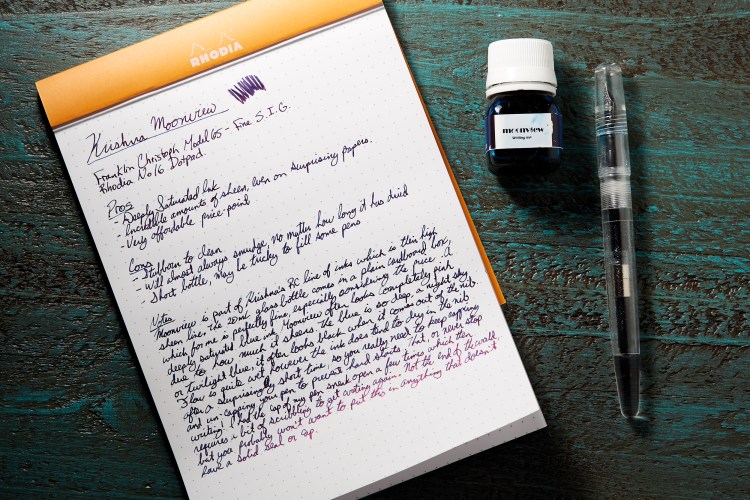 RHODIA
Krishna Moonview
Franklin Christoph Model 65 - Fine S.I.G.
Rhodia No 16 Dotpad
Pros
- Deeply Saturated Ink
- Incredible amounts of sheen, even on surprising papers.
- Very affordable price point
Cons
- Stubborn to clean
- Will almost always smudge, no matter how long it has dried
- Short bottle, may be tricky to fill some pens
Notes
Moonview is part of Krishna's RC line of inks which is their high
sheen line. The 20ml glass bottle comes in a plain cardboard box,
which for me is perfectly fine, especially considering the price. A
deeply saturated blue ink, Moonview often looks completely pink
due to how much it sheens. The blue is so deep, a night sky
or twilight blue, it often looks black when it comes out of the nib.
Flow is quite wet, however the ink does tend to dry in the nib
after a surprisingly short time, so you really need to keep capping
and un-capping your pen to prevent hard starts. That, or never stop
writing! I had the cap of my pen sneak open a few times which then
requires a bit of scribbling to get writing again. Not the end of the world,
but you probably won't want to put this in anything that doesn't
have a solid seal or cap.
moonview
Writing ink